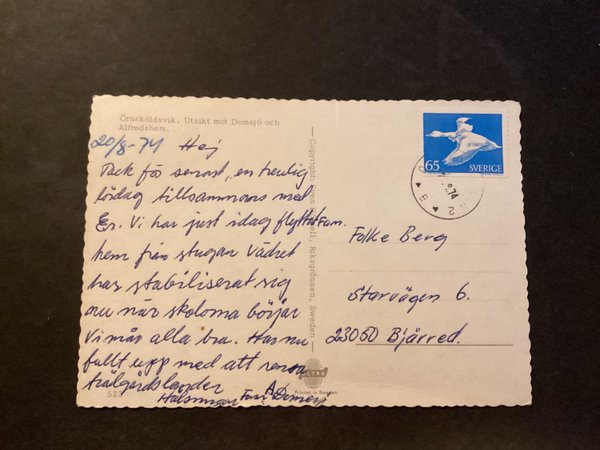 Örnsköldsvik. Utsikt mot Domsjö och
Alfredshem.
20/8-74 Hej
Tack för senast, en trevlig
lördag tillsammans med
Er. Vi har just idag flyttat
hem från stugan Vädret
har stabiliserat sig
nu när skolorna börjar
Vi mår alla bra. Har nu
fullt upp med att rensa
trädgårdslandet
Hälsningar Fam.
525
— Copyright: Sven Hörnell, Riksgränsen, Sweden —
ULTRA
Printed in Sweden
65 SVERIGE
74
B 2
Fam.
Folke Berg
Starvägen 6.
23060 Bjärred.